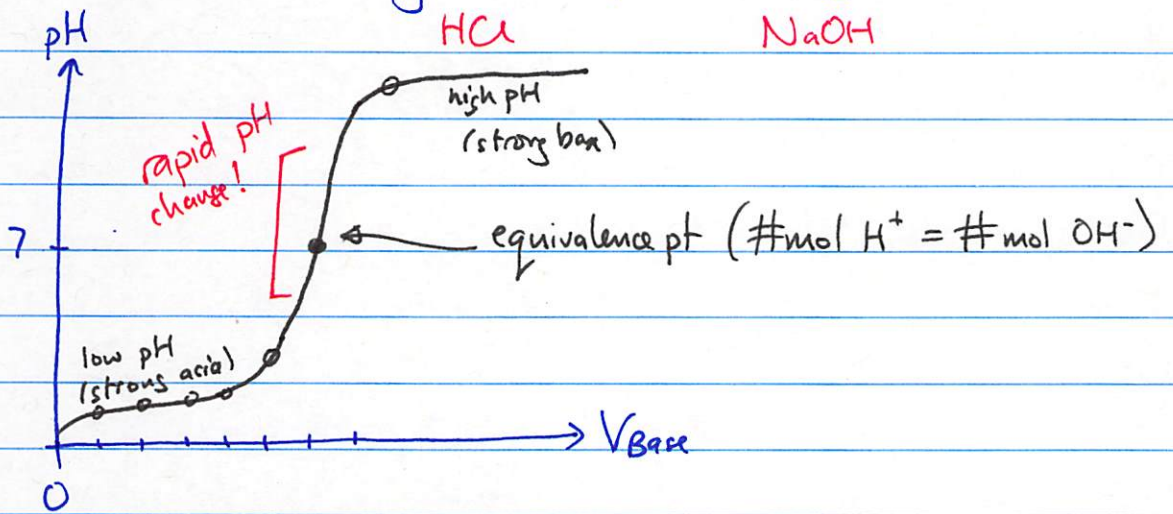 pH
HCl
NaOH
high pH
(strong base)
rapid pH
change!
7
equivalence pt (#mol H⁺ = #mol OH⁻)
low pH
(strong acid)
VBase
0